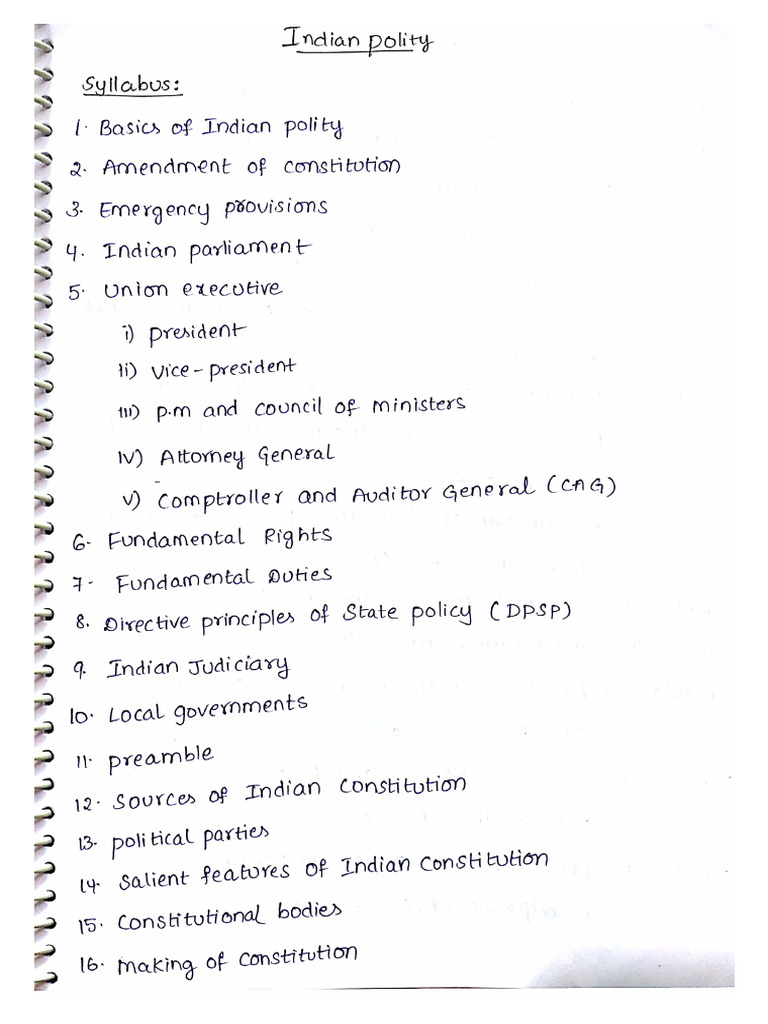 Indian polity
Syllabus:
1. Basics of Indian polity
2. Amendment of constitution
3. Emergency provisions
4. Indian parliament
5. Union executive
i) president
ii) vice-president
III) p.m and council of ministers
IV) Attorney General
v) Comptroller and Auditor General (CAG)
6. Fundamental Rights
7- Fundamental Duties
8. Directive principles of State policy (DPSP)
9. Indian Judiciary
10. Local governments
11. preamble
12. Sources of Indian Constitution
13. political parties
14. Salient features of Indian Constitution
15. Constitutional bodies
16. Making of constitution